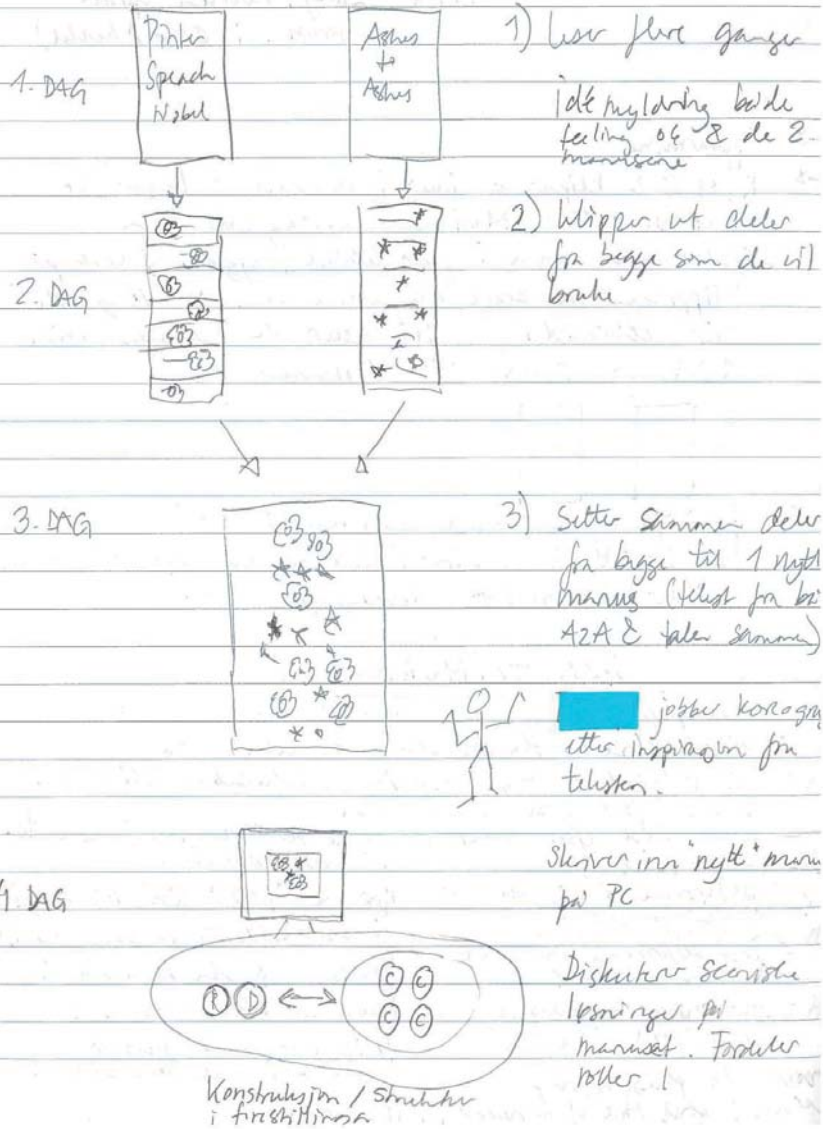 1. DAG
Pinter
Speach
Nobel
Ashes
to
Ashes
1) leser flere ganger
idémyldring både
feeling og & de 2
manusene
2. DAG
2) klipper ut deler
fra begge som de vil
bruke
3. DAG
3) Setter sammen deler
fra begge til 1 nytt
manus (tekst fra
A2A & talen sammen)
jobber koreogra
etter inspirasjon fra
teksten.
4. DAG
Skriver inn "nytt" manu
på PC
R D
C C
C C
Diskuterer sceniske
løsninger på
manuset. Fordeler
roller!
Konstruksjon / struktur
i